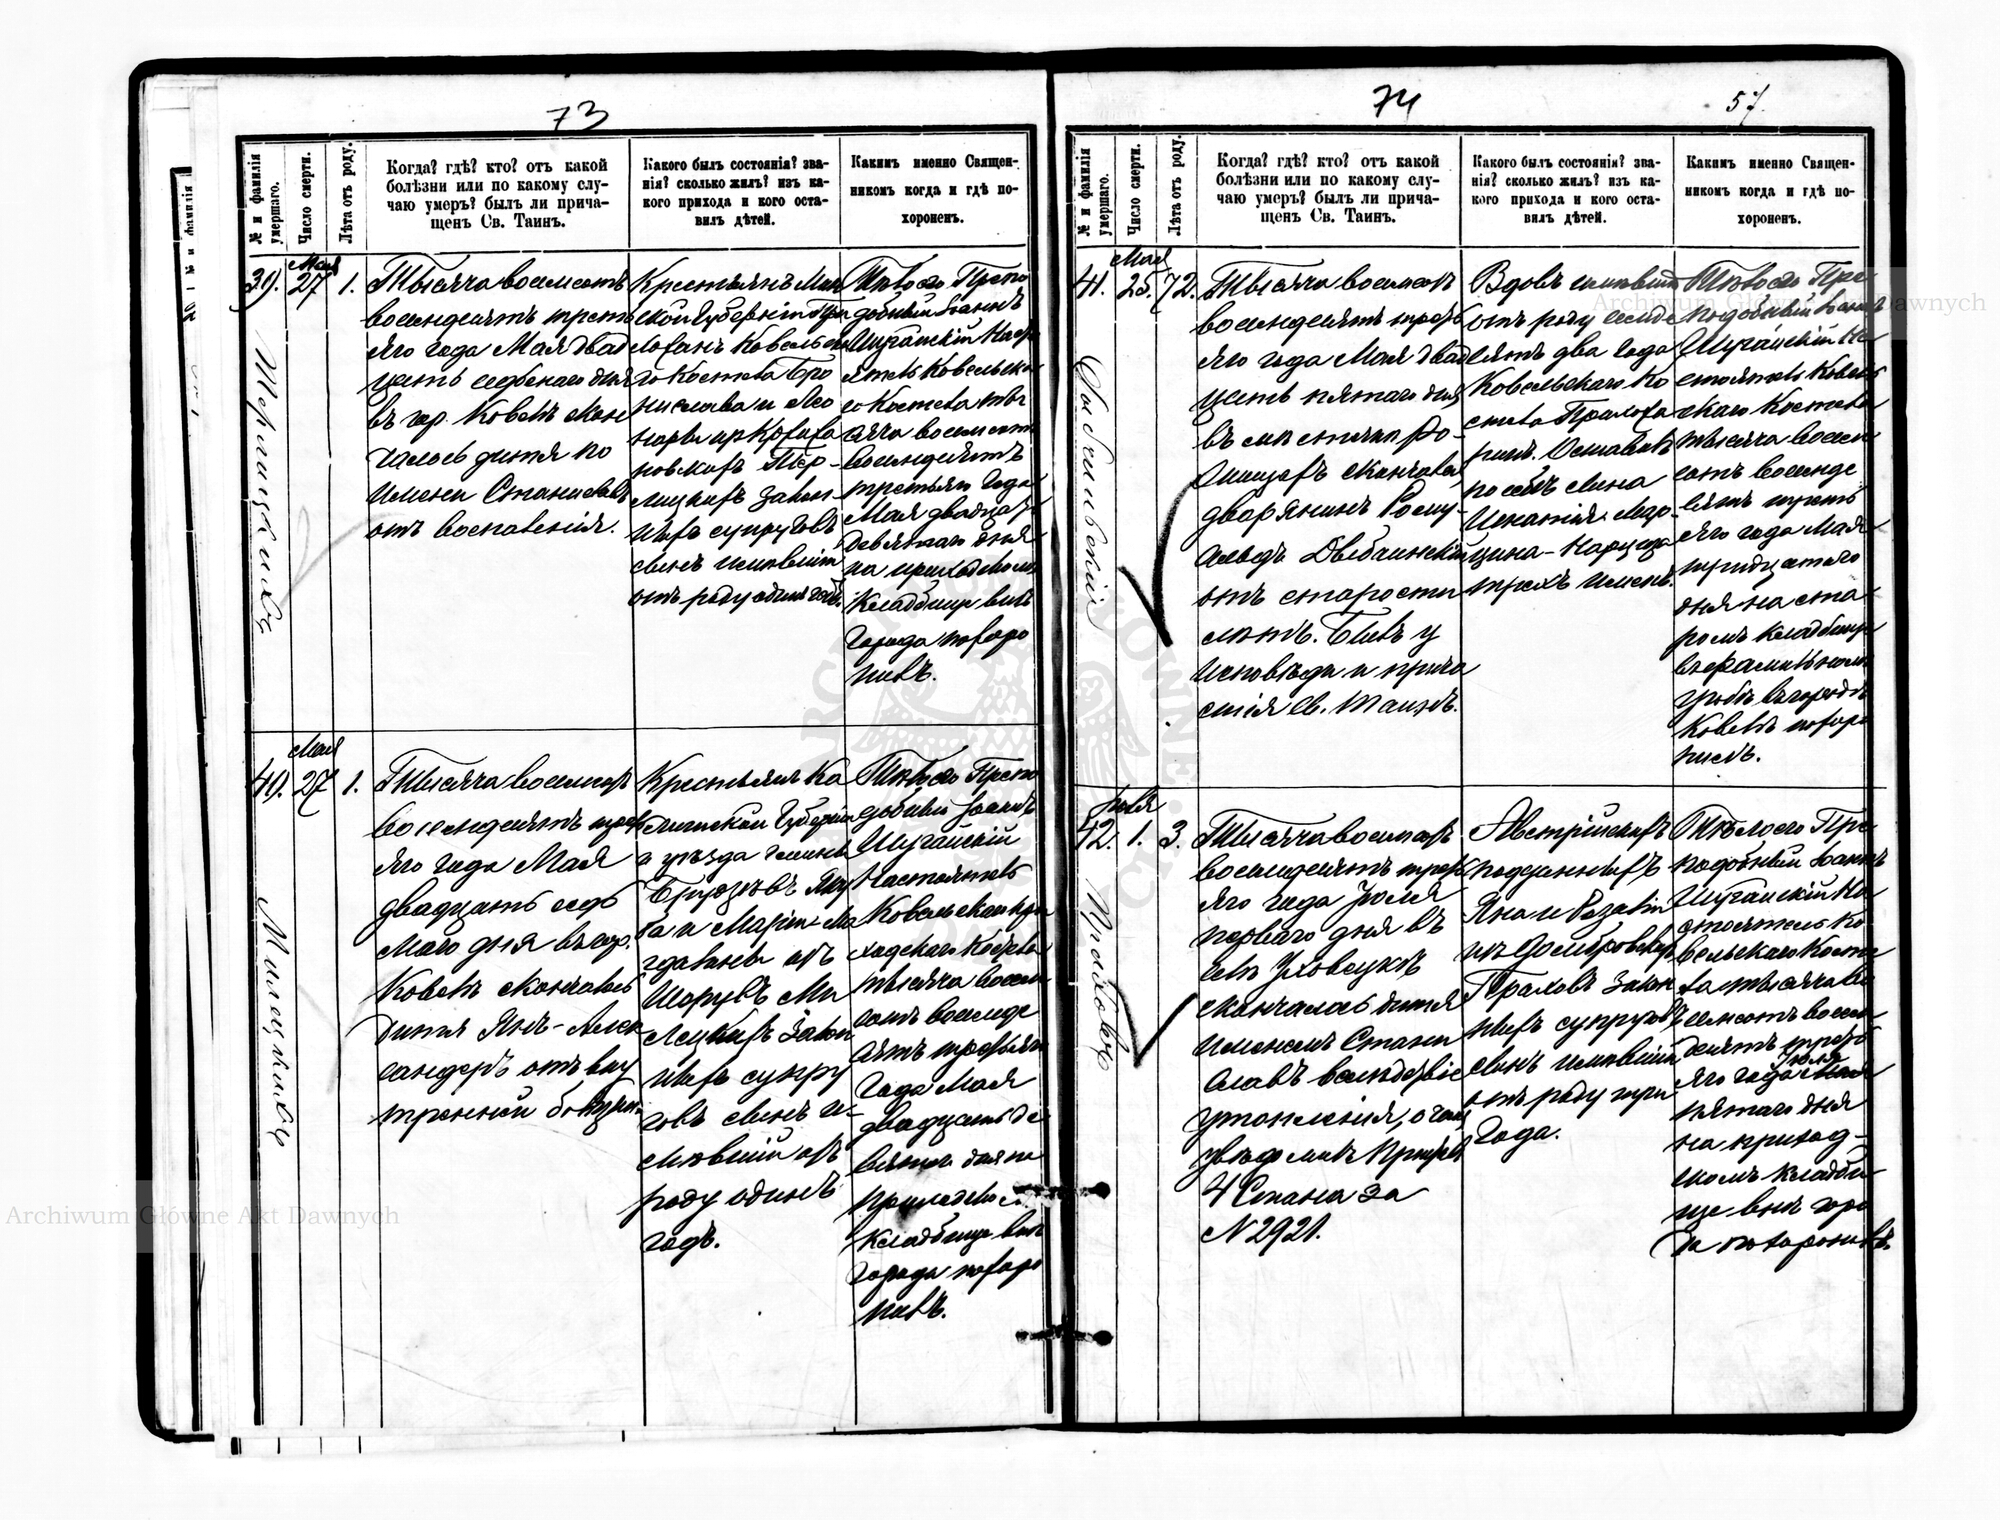 73
№ и фамилія умершаго.
Число смерти.
Лѣта отъ роду.
Когда? гдѣ? кто? отъ какой
болѣзни или по какому слу-
чаю умеръ? былъ ли прича-
щенъ Св. Таинъ.
Какого былъ состоянія? зва-
нія? сколько жилъ? изъ ка-
кого прихода и кого оста-
вилъ дѣтей.
Какимъ именно Священ-
никомъ когда и гдѣ по-
хороненъ.
39.
Мая
27
1.
Тысяча восемьсотъ
восемдесятъ треть
яго года Мая двад
цать седьмаго дня
въ гор. Ковелѣ скон
чалось дитя по
имени Станиславъ
отъ воспаленія.
Крестьянъ
ской Губерніи
Ковельска
го Костела Бро
нислава и Лео
норы
законн
ыхъ супруговъ
сынъ имѣвшій
отъ роду одинъ годъ.
Тѣло его Препо
добный Іоаннъ
Шуганскій Насто
ятель Ковельска
го Костела ты
сяча восемьсотъ
восемдесятъ
третьяго года
Мая двадцать
девятаго дня
на приходскомъ
кладбищѣ внѣ
города похоро
нилъ.
40.
Мая
27
1.
Тысяча восемьсотъ
восемдесятъ треть
яго года Мая
двадцать седь
маго дня въ гор.
Ковелѣ скончалось
дитя Янъ-Алек
сандеръ отъ вну
тренней болѣзни.
Крестьянъ Ка
лишской Губерніи
и уѣзда гмины
ба и Маріи Ма
гдалины
лецкихъ закон
ныхъ супру
говъ сынъ и-
мѣвшій отъ
роду одинъ
годъ.
Тѣло его Препо
добный Іоаннъ
Шуганскій
Настоятель
Ковельскаго при
ходскаго Костела
тысяча восемь
сотъ восемде
сятъ третьяго
года Мая
двадцать де
вятаго дня на
приходскомъ
кладбищѣ внѣ
города похоро
нилъ.
74
57
№ и фамилія умершаго.
Число смерти.
Лѣта отъ роду.
Когда? гдѣ? кто? отъ какой
болѣзни или по какому слу-
чаю умеръ? былъ ли прича-
щенъ Св. Таинъ.
Какого былъ состоянія? зва-
нія? сколько жилъ? изъ ка-
кого прихода и кого оста-
вилъ дѣтей.
Какимъ именно Священ-
никомъ когда и гдѣ по-
хороненъ.
41.
Мая
25.
72.
Тысяча восемьсотъ
восемдесятъ треть
яго года Мая двад
цать пятаго дня
въ мѣстечкѣ Ро-
жищахъ скончался
дворянинъ Рому-
альдъ Довбчинскій
отъ старости
лѣтъ. Былъ у
исповѣди и прича
стія Св. Таинъ.
Вдовъ имѣвшій
отъ роду семьде
сятъ два года
Ковельскаго Ко
стела Прихожа
нинъ. Оставилъ
по себѣ сына
Игнатія-Мар-
цина-Нарциза
трехъ именъ.
Тѣло его Пре
подобный Іоаннъ
Шуганскій На
стоятель Ковель
скаго Костела
тысяча восемь
сотъ восемде
сятъ треть
яго года Мая
тридцатаго
дня на ста
ромъ кладбищѣ
въ фамильномъ
гробѣ въ городѣ
Ковелѣ похоро
нилъ.
42.
Іюля
1.
3.
Тысяча восемьсотъ
восемдесятъ треть
яго года Іюля
перваго дня въ
селѣ Уховецкѣ
скончалось дитя
именемъ Стани
славъ вслѣдствіе
утопленія, о чемъ
увѣдомилъ Приставъ
4 Стана за
№ 2921.
Австрійскихъ
подданныхъ
Яна и Розаліи
изъ Домбровскихъ
Праловъ закон
ныхъ супруговъ
сынъ имѣвшій
отъ роду три
года.
Тѣло его Пре
подобный Іоаннъ
Шуганскій На
стоятель Ко
вельскаго Косте
ла тысяча во
семьсотъ восем
десятъ треть
яго года Іюля
пятаго дня
на приход-
скомъ кладби
ще внѣ горо
да похоронилъ.
Archiwum Główne Akt Dawnych
Archiwum Główne Akt Dawnych